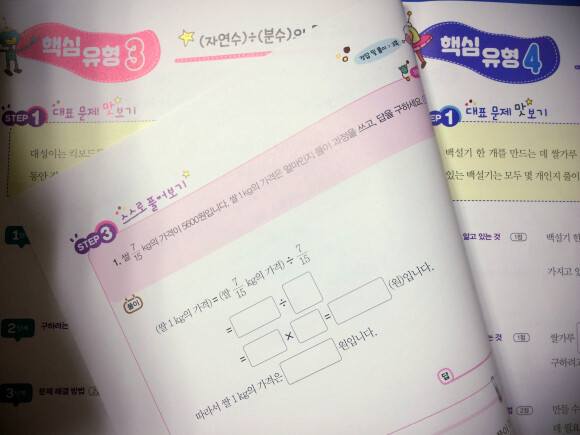 핵심
유형 3
(자연수)÷(분수)의
STEP 1 대표 문제 맛보기
대성이는 킥보드를
동안
구하려는
문제 해결 방법
정답 및 풀이
STEP 3 스스로 풀어보기
1. 쌀 7/15 kg의 가격이 5600원입니다. 쌀 1 kg의 가격은 얼마인지 풀이 과정을 쓰고, 답을 구하세요.
풀이
(쌀 1 kg의 가격) = (쌀 7/15 kg의 가격) ÷ 7/15
= ÷
= × = (원)입니다.
따라서 쌀 1 kg의 가격은 원입니다.
답
핵심
유형 4
STEP 1 대표 문제 맛보기
백설기 한 개를 만드는 데 쌀가루
있는 백설기는 모두 몇 개인지 풀이
알고 있는 것 1점 백설기 한
가지고
는 것 1점 쌀가루
구하려고
법 2점 만들 수
데 필요